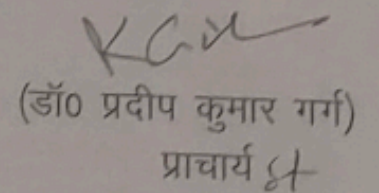 (डॉ0 प्रदीप कुमार गर्ग)
प्राचार्य